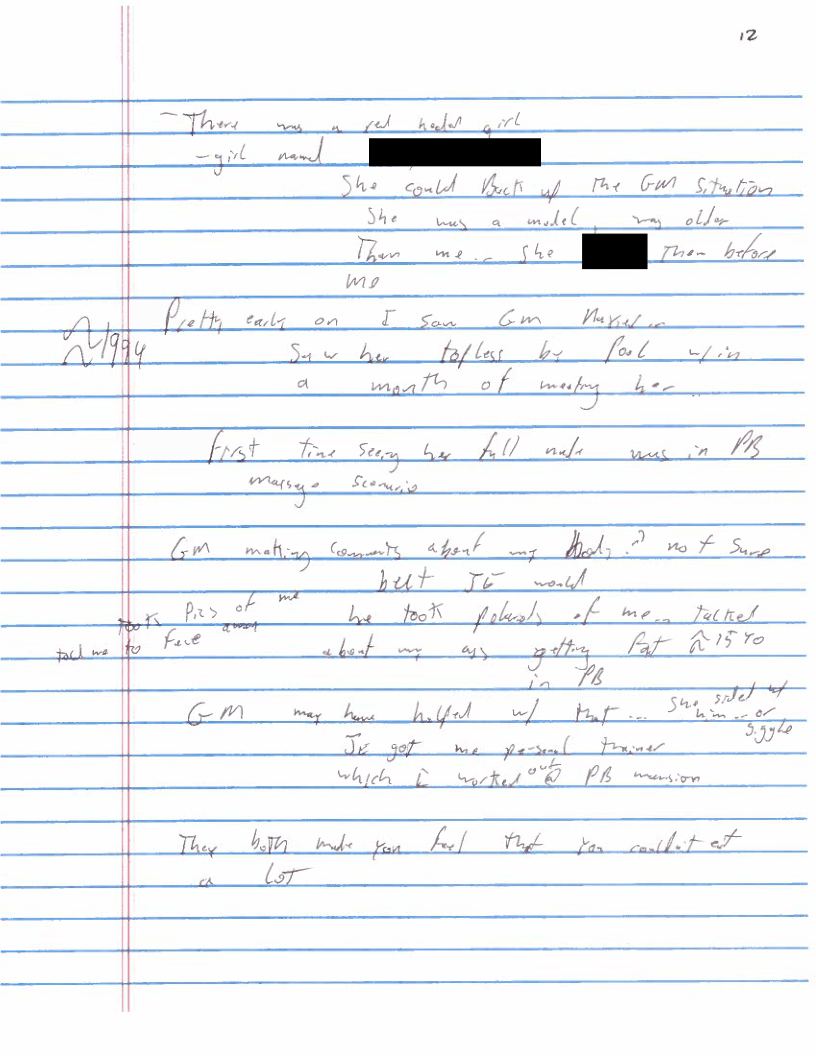 12
- There was a red headed girl
- girl named
She could Back up The GM Situation
She was a model, was older
Than me.. She Then before
me
Pretty early on I saw GM Naked..
~1994
Saw her topless by pool w/in
a month of meeting her..
First time seeing her full nude was in PB
massage scenario
GM making comments about my Body?? not sure
but JE would
took Pics of me he took polaroids of me.. talked
told me to Face about my ass getting fat ~ 15 YO
in PB
GM may have helped w/ that... She sided w/
him.. or
giggle
JE got me personal trainer
which I worked out @ PB mansion
They both made you feel that you couldn't eat
a LOT